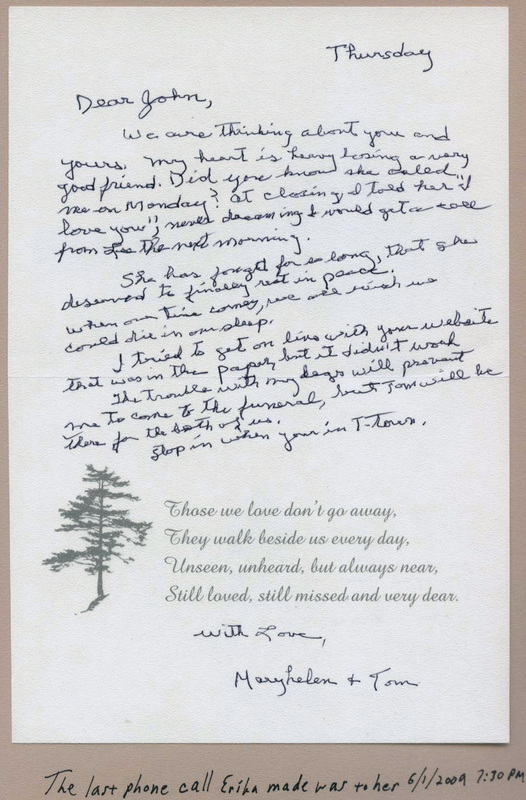 Thursday
Dear John,
We are thinking about you and
yours. My heart is heavy losing a very
good friend. Did you know she called
me on Monday? At closing I told her "I
love you", never dreaming I would get a call
from Lee the next morning.
She has fought for so long, that she
deserved to finally rest in peace.
When our time comes, we all wish we
could die in our sleep.
I tried to get on line with your website
that was in the paper, but it didn't work
The trouble with my legs will prevent
me to come to the funeral, but Tom will be
there for the both of us.
Stop in when your in T-town.
Those we love don't go away,
They walk beside us every day,
Unseen, unheard, but always near,
Still loved, still missed and very dear.
With Love,
Maryhelen + Tom
The last phone call Erika made was to her 6/1/2009 7:30 PM